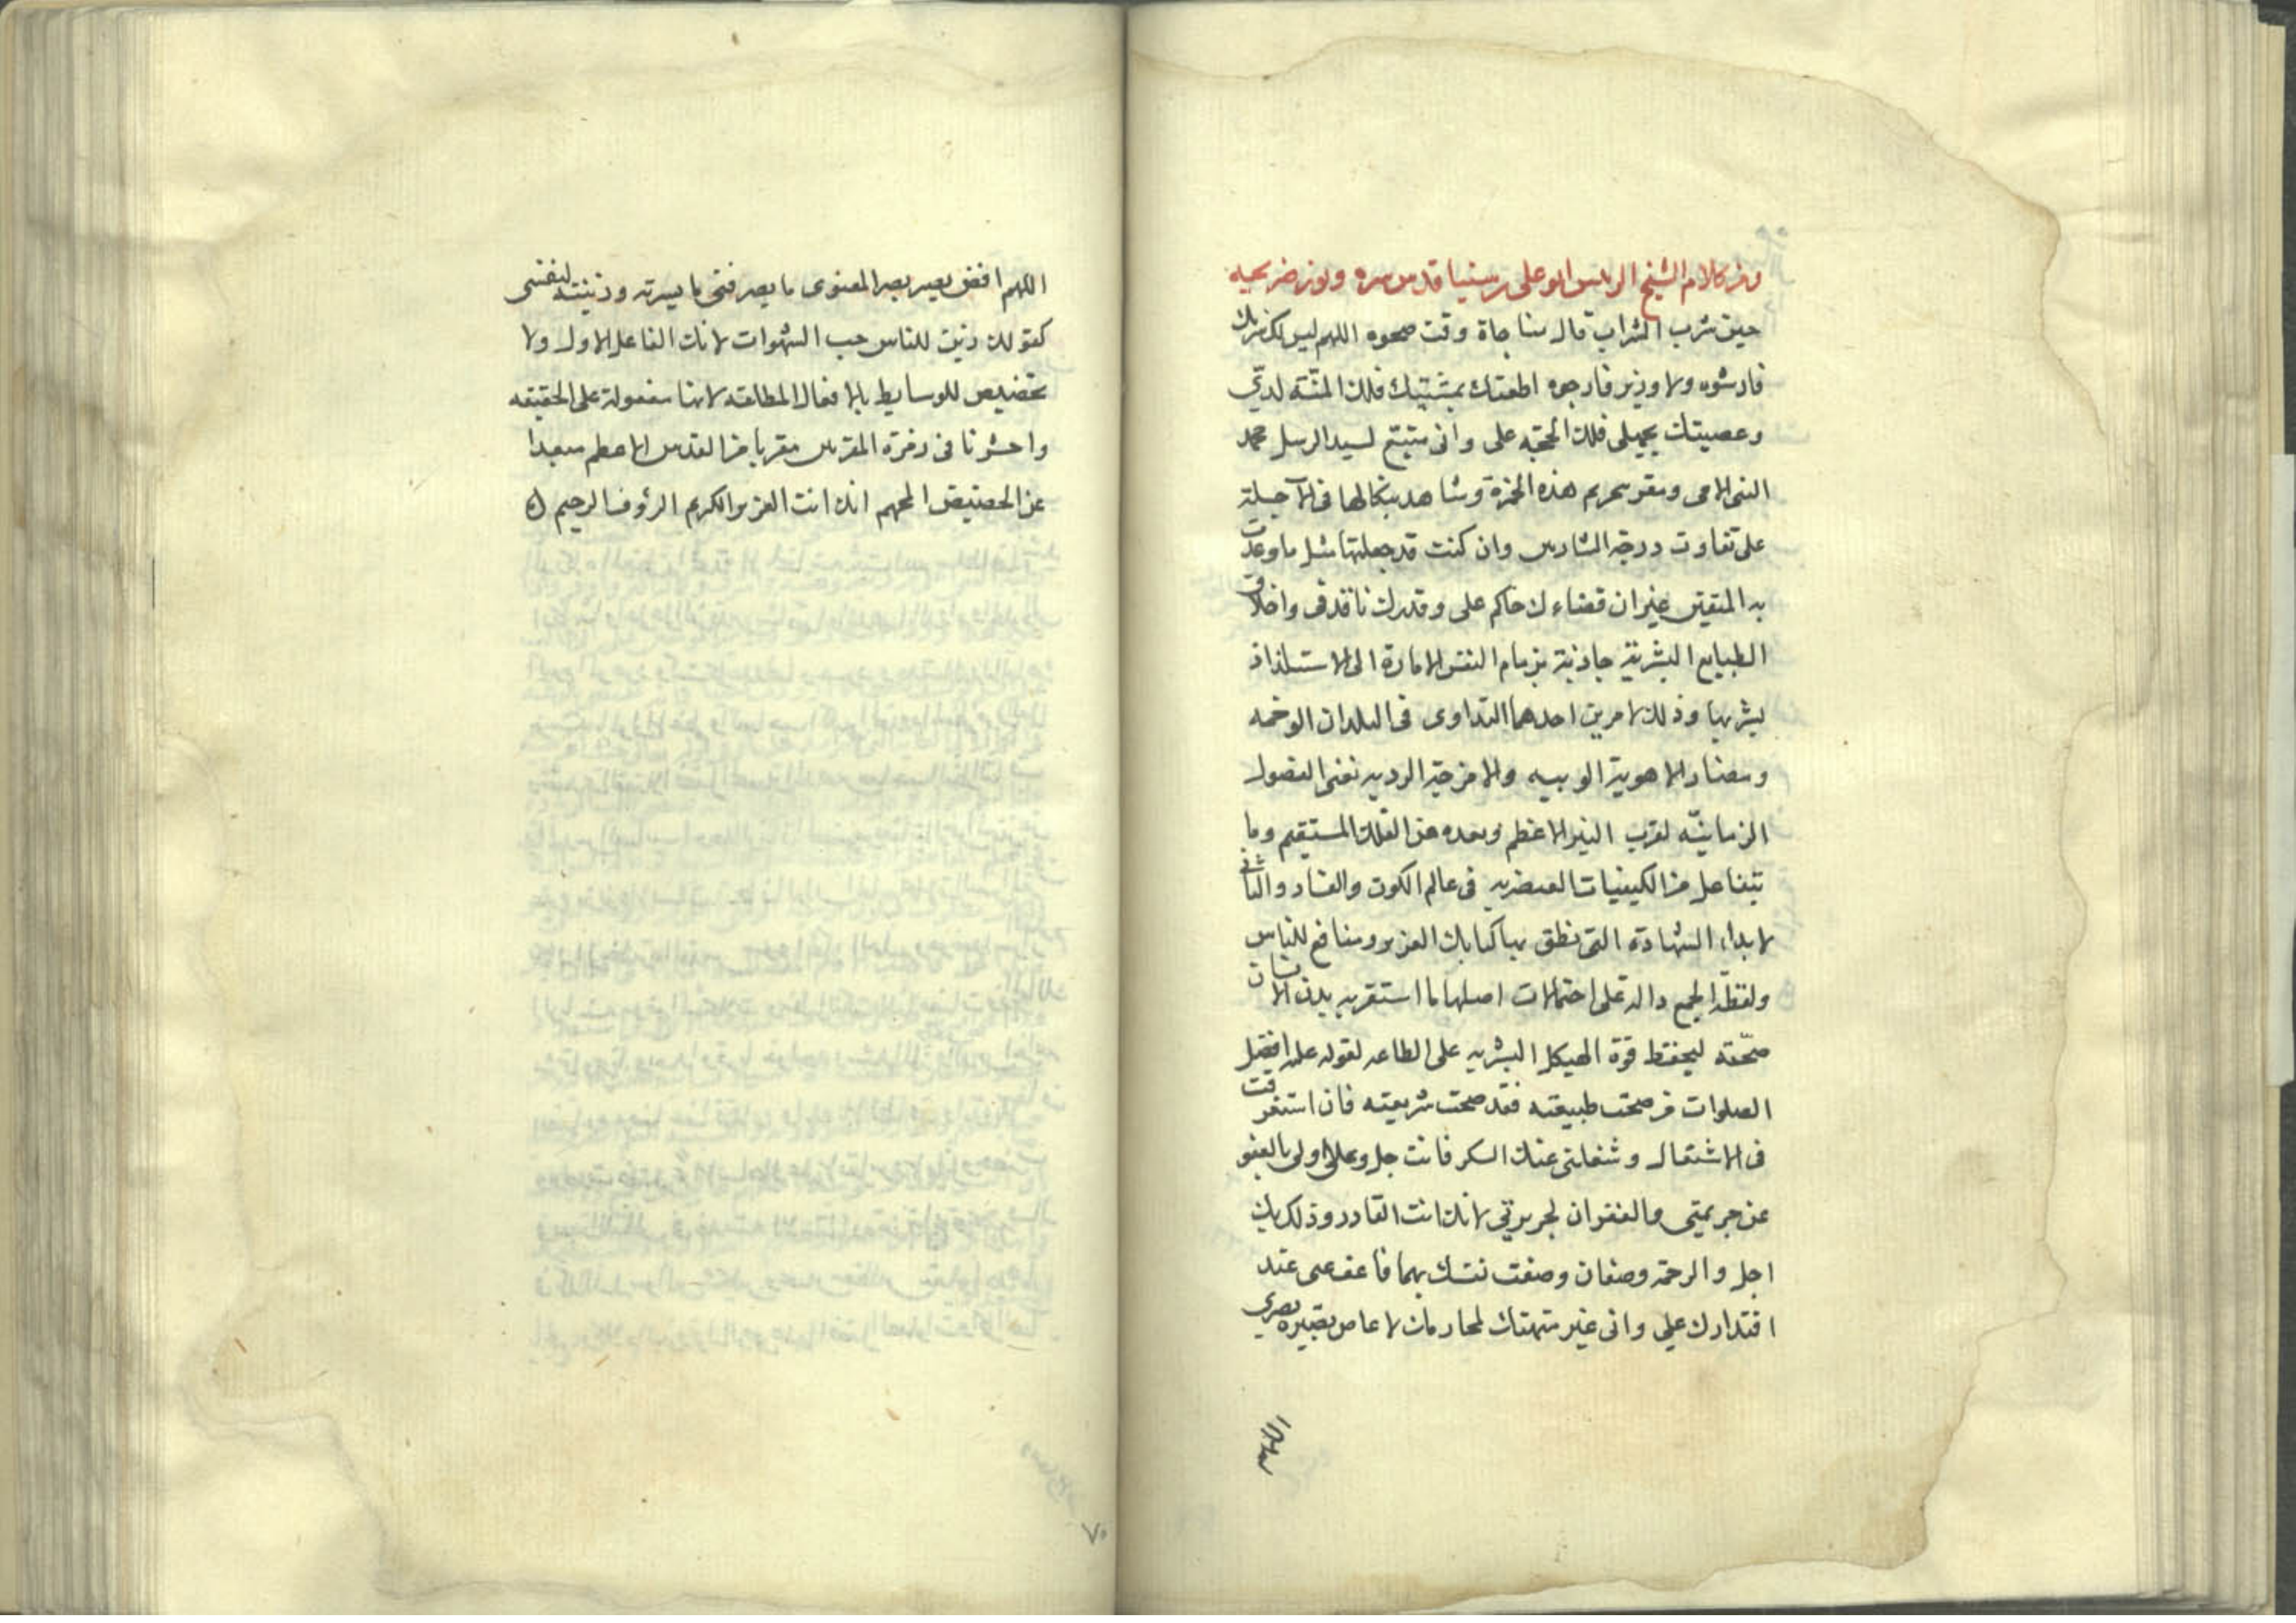 ومن كلام الشيخ الرئيس ابو على بن سينا قدس سره ونور ضريحه
حين شرب الشراب قال مناجاة وقت صحوه اللهم ليس لك شريك
فارشوه ولا وزير فارجوه اطعتك بمشيتك فلك المنّة لديّ
وعصيتك بجهلى فلك الحجة على وانى متبع لسيد الرسل محمد
النبى الامى ومقر بتحريم هذه الخمرة وشاهد بنكالها فى الآجلة
على تفاوت درجة الشاربين وان كنت قد جعلتها مثل ما وعدت
به المتقين غير ان قضاءك حاكم على وقدرك نافذ فى واخلاق
الطبايع البشرية جاذبة بزمام النفس الامارة الى الاستلذاذ
بشربها وذلك لامرين احدهما التداوى فى البلدان الوخمه
ومضار الاهوية الوبيه والامزجة الرديه نعنى الفصول
الزمانيّه لقرب النير الاعظم وبعده عن الفلك المستقيم وما
يتفاعل من الكيفيات العنصريه فى عالم الكون والفساد والثانى
لابداء الشهادة التى نطق بها كتابك العزيز ومنافع للناس
ولفظة الجمع دالة على احتمالات اصلها ما استقر به بدن الانسان
صحّته ليحفظ قوة الهيكل البشريه على الطاعه لقوله عليه افضل
الصلوات من صحت طبيعته فقد صحت شريعته فان استغرقت
فى الاشتغال وشغلنى عنك السكر فانت جل وعلا اولى بالعفو
عن جريمتى والغفران لجريرتي لانك انت القادر وذلك بك
اجل والرحمة وصفان وصفت نفسك بهما فاعف عنى عند
اقتدارك علي وانى غير منهتك لمحارمك لا عاص بصيره بصرى
اللهم
اللهم افض بصير بصر المعنوى ما يصرفنى ما يسرته وزينته لنفسى
كقولك زين للناس حب الشهوات لانك الفاعل الاول ولا
تخصيص للوسايط بالافعال المطلقه لانها مفعولة على الحقيقه
واحشرنا فى زمرة المقربين مقربا من القدس الاعظم مبعدا
عن الحضيض الجهنم انك انت العزيز الكريم الرؤف الرحيم
٧٠